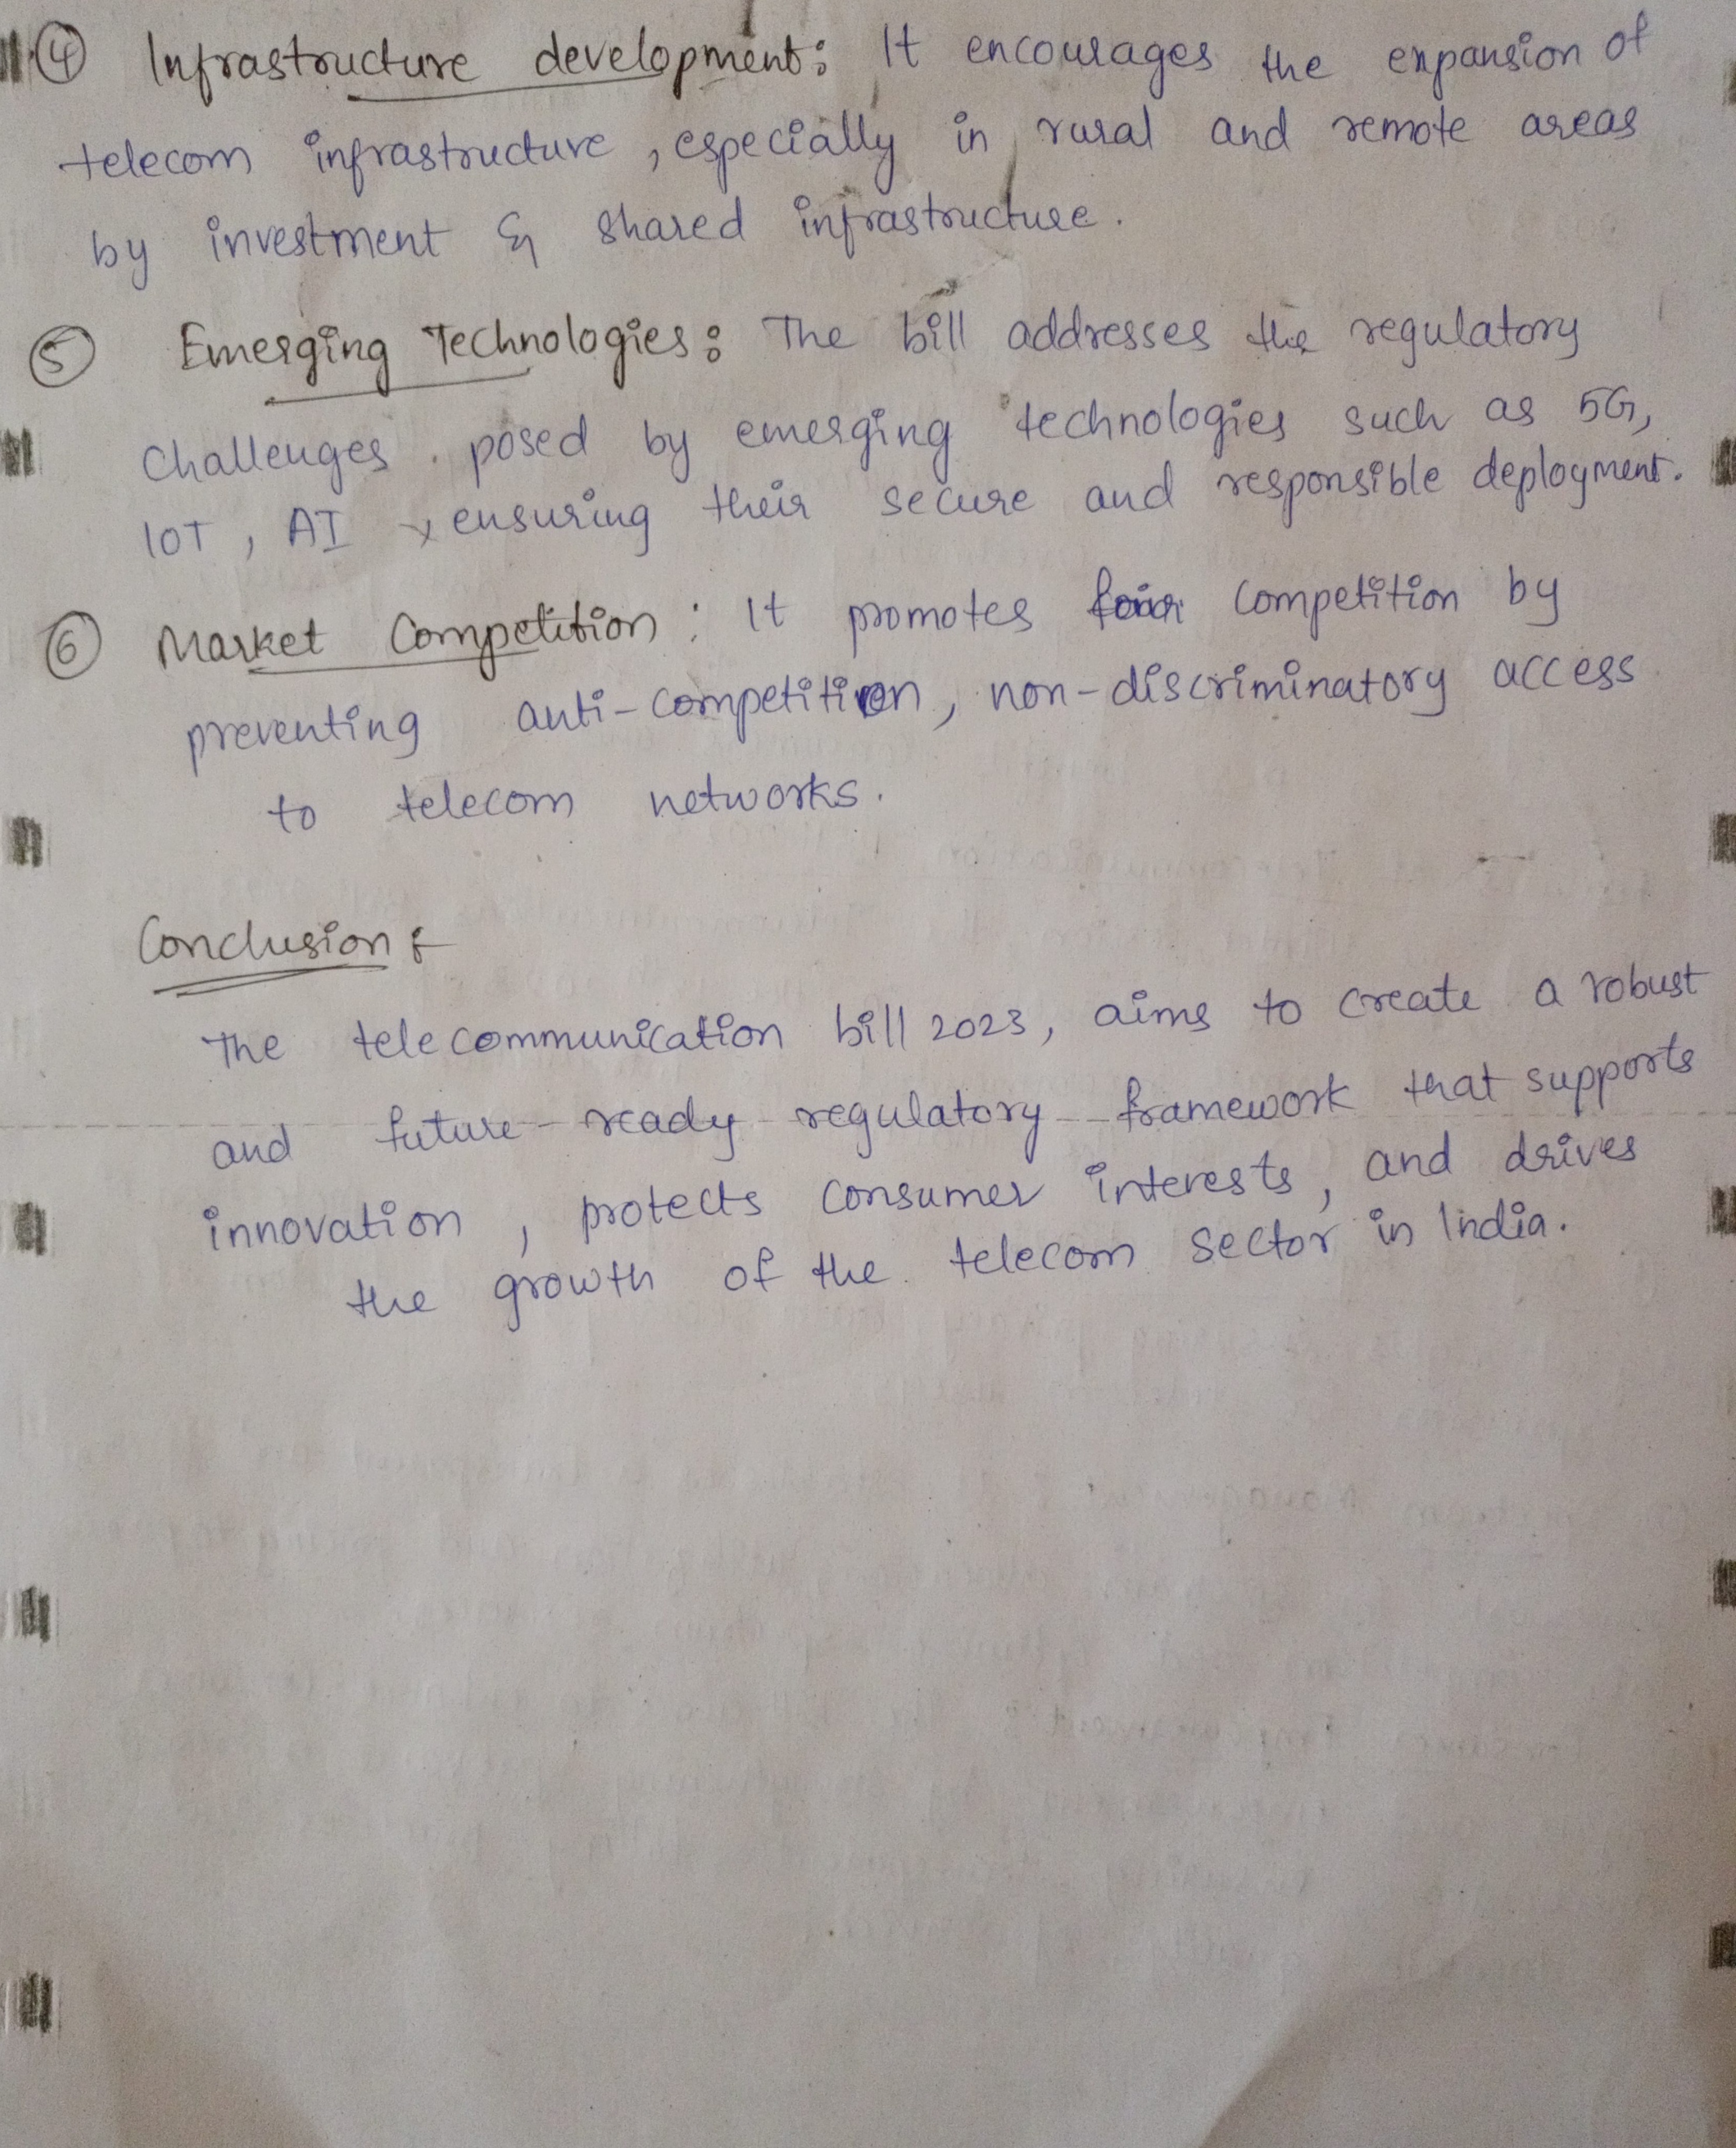 ④ Infrastructure development: It encourages the expansion of
telecom infrastructure, especially in rural and remote areas
by investment & shared infrastructure.
⑤ Emerging Technologies: The bill addresses the regulatory
challenges posed by emerging technologies such as 5G,
IOT, AI, ensuring their secure and responsible deployment.
⑥ Market Competition: It promotes fair competition by
preventing anti-competition, non-discriminatory access
to telecom networks.
Conclusion:
The telecommunication bill 2023, aims to create a robust
and future-ready regulatory framework that supports
innovation, protects consumer interests, and drives
the growth of the telecom sector in India.